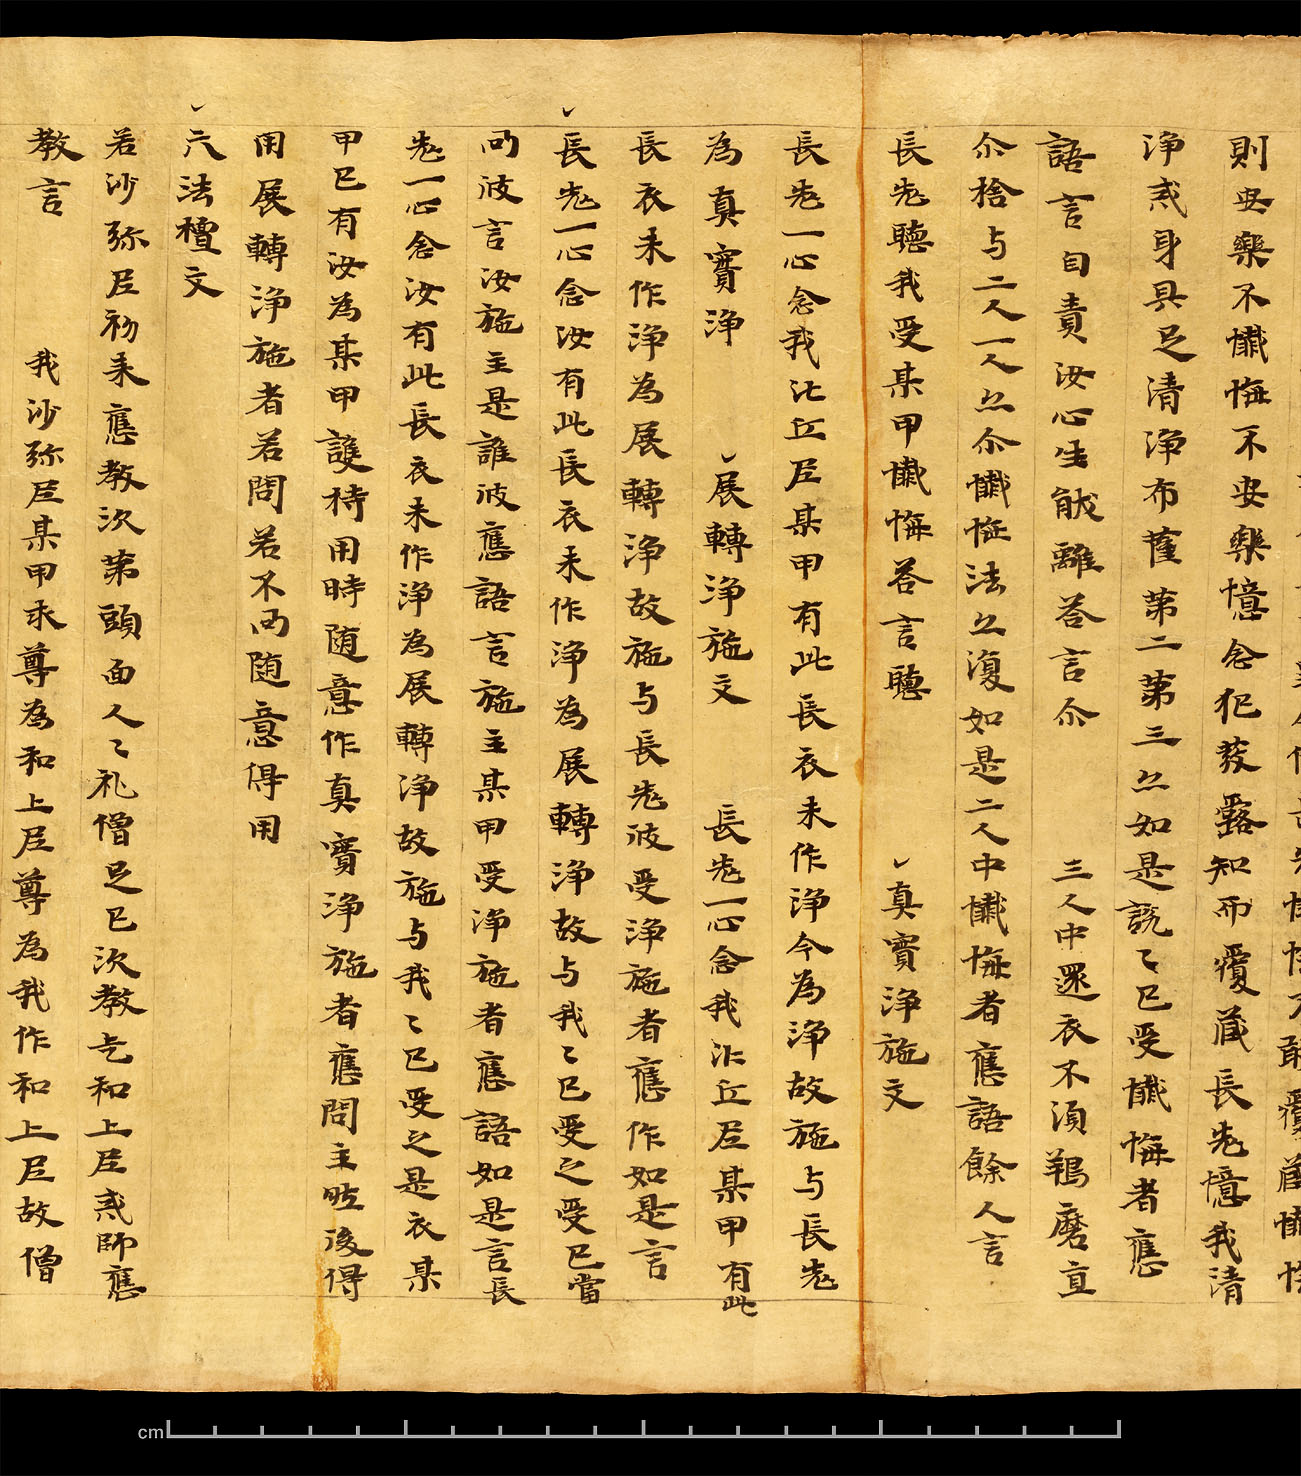 則安樂不懺悔不安樂憶念犯發露知而不覆藏長老憶我清
淨戒身具足清淨布薩第二第三亦如是說〻已受懺悔者應
語言自責汝心生猒離答言尒　三人中還衣不須羯磨直
尒捨与二人一人亦尒懺悔法亦復如是二人中懺悔者應語餘人言
長老聽我受某甲懺悔答言聽　真實淨施文
長老一心念我比丘尼某甲有此長衣未作淨今為淨故施与長老
為真實淨　展轉淨施文　長老一心念我比丘尼某甲有此
長衣未作淨為展轉淨故施与長老彼受淨施者應作如是言
長老一心念汝有此長衣未作淨為展轉淨故与我〻已受之受已當
問彼言汝施主是誰彼應語言施主某甲受淨施者應語如是言長
老一心念汝有此長衣未作淨為展轉淨故施与我〻已受之是衣某
甲已有汝為某甲護持用時随意作真實淨施者應問主然後得
用展轉淨施者若問若不問随意得用
六法檀文
若沙弥尼初来應教次第頭面人〻礼僧足已次教乞和上尼戒師應
教言　我沙弥尼某甲求尊為和上尼尊為我作和上尼故僧